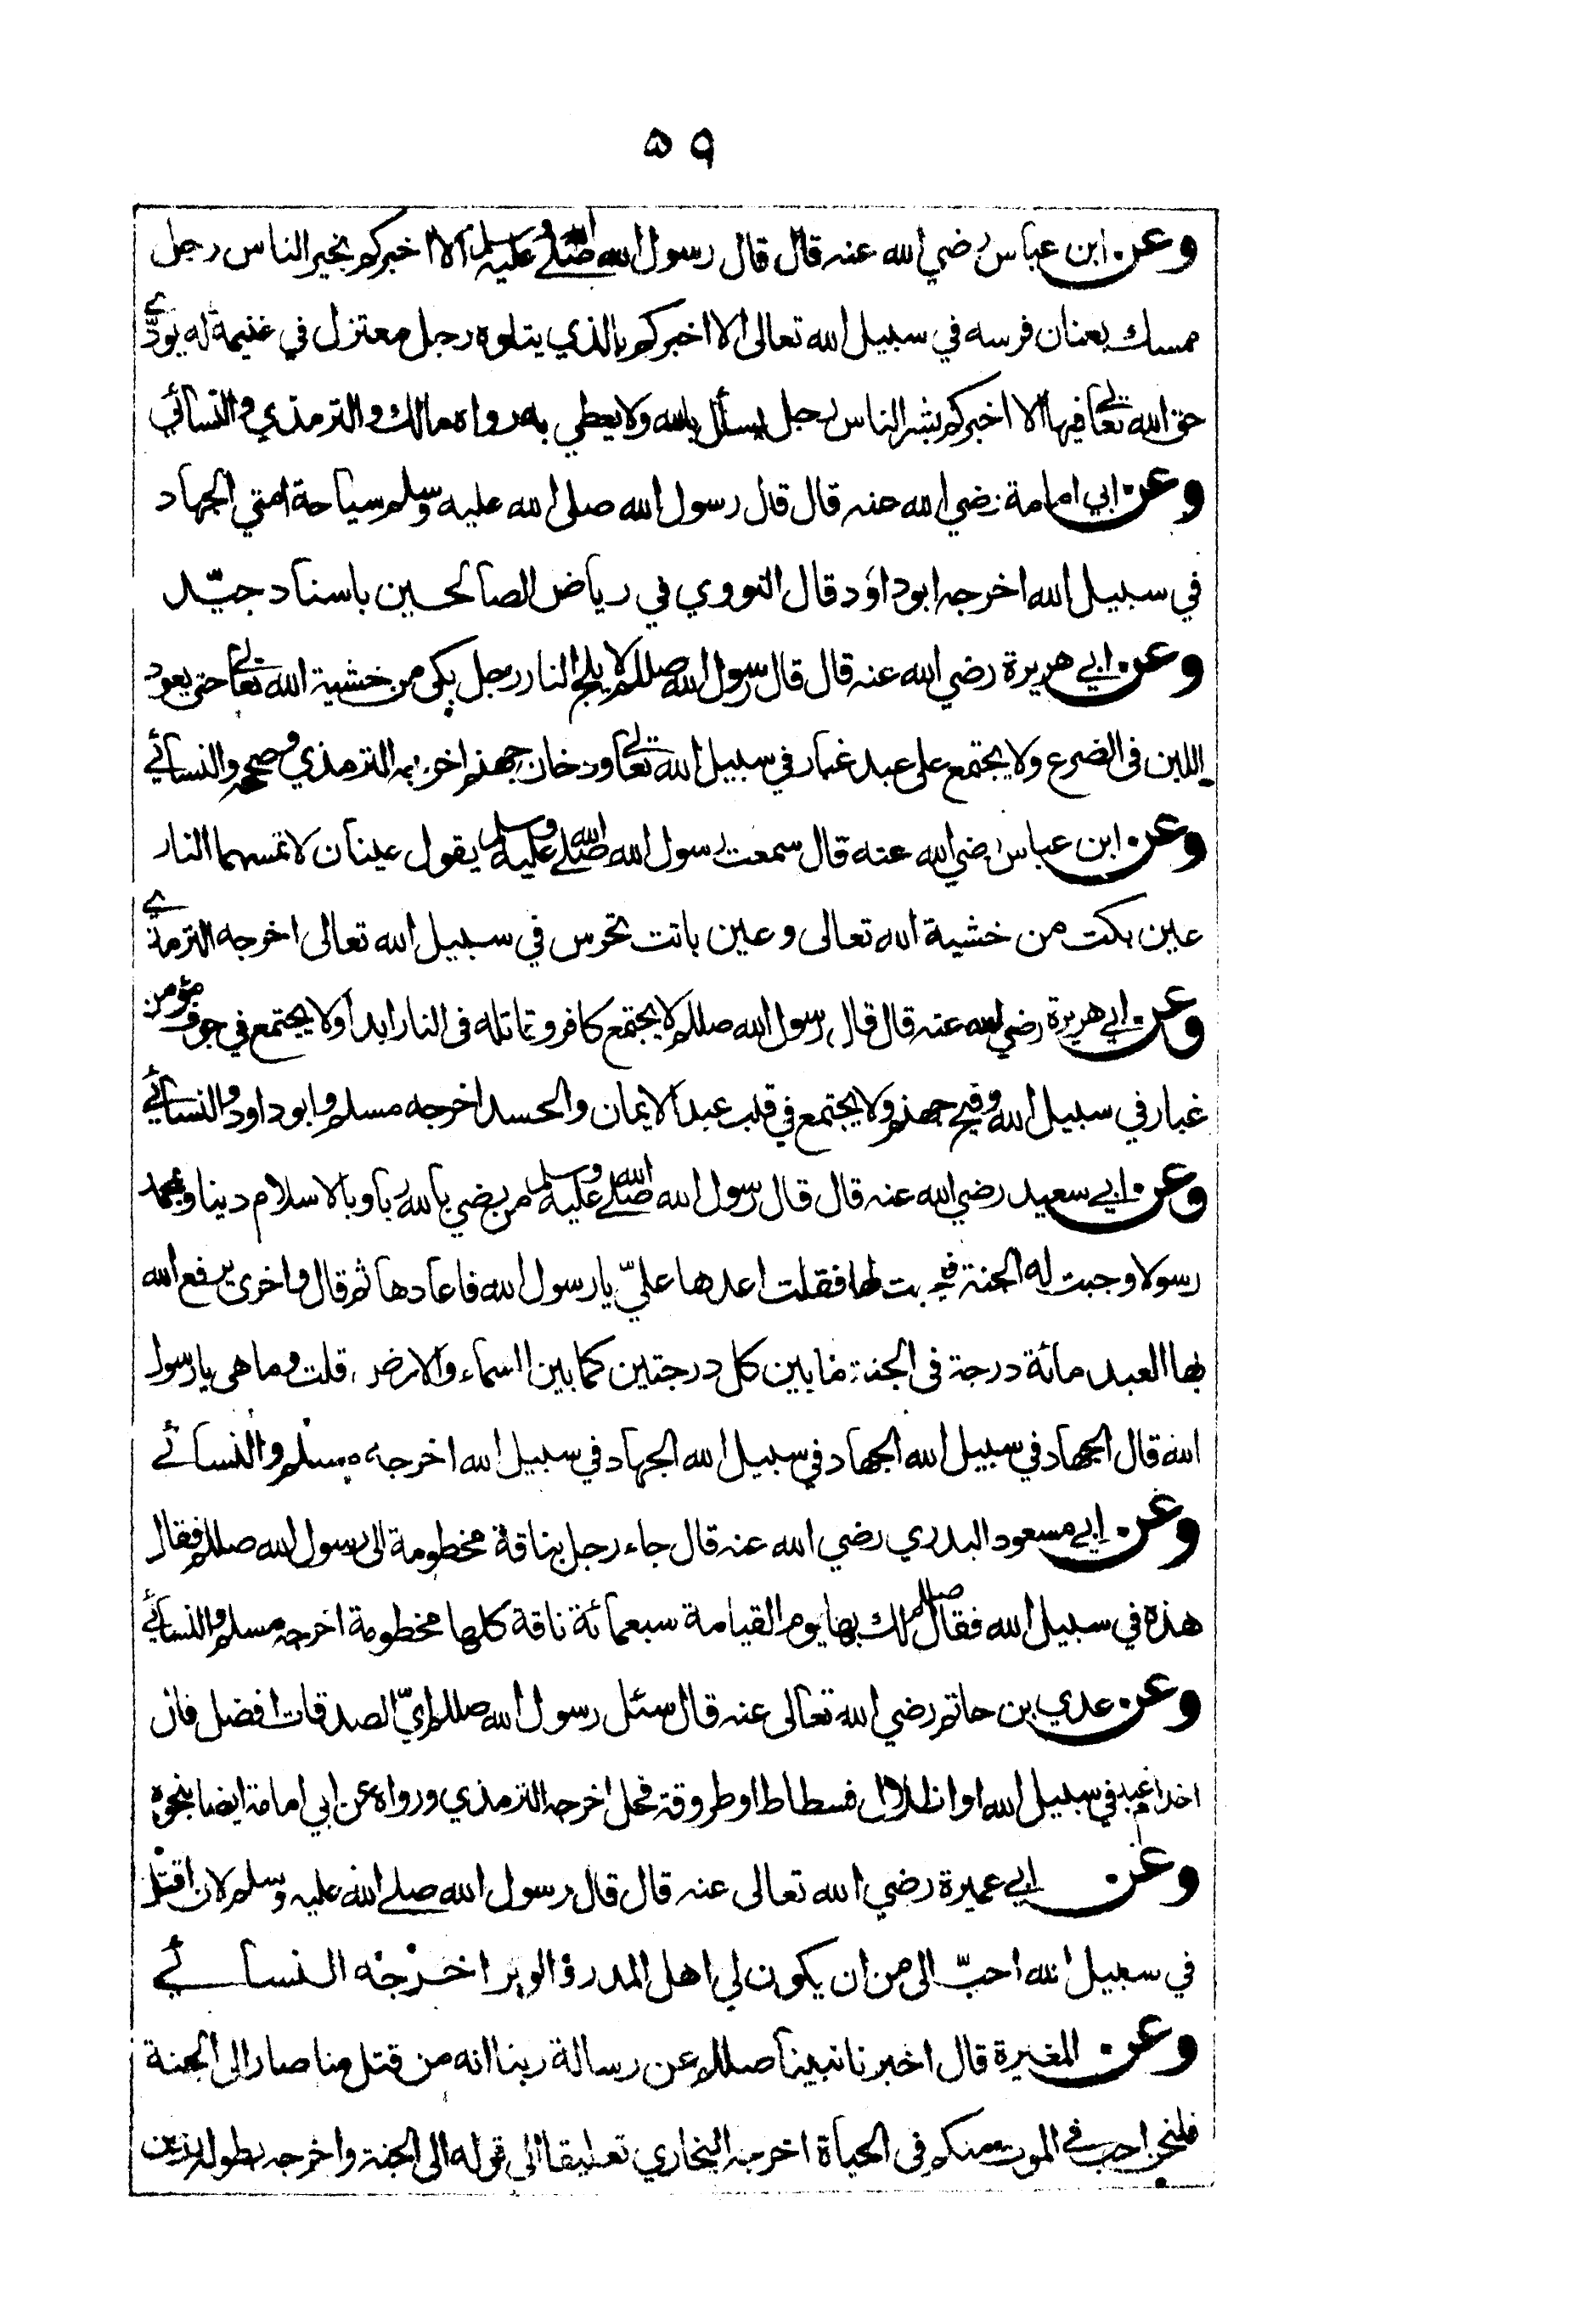 ٥٩
وعن ابن عباس رضي الله عنه قال قال رسول الله صلى الله عليه وسلم الا اخبركم بخير الناس رجل
ممسك بعنان فرسه في سبيل الله تعالى الا اخبركم بالذي يتلوه رجل معتزل في غنيمة له يودّي
حق الله تعالى فيها الا اخبركم بشر الناس رجل يسأل بالله ولا يعطي به رواه مالك والترمذي والنسائي
وعن ابي امامة رضي الله عنه قال قال رسول الله صلى الله عليه وسلم سياحة امتي الجهاد
في سبيل الله اخرجه ابوداؤد قال النووي في رياض الصالحين باسناد جيّد
وعن ابي هريرة رضي الله عنه قال قال رسول الله صللم لا يلج النار رجل بكى من خشية الله تعالى حتى يعود
اللبن فى الضرع ولا يجتمع على عبد غبار في سبيل الله تعالى ودخان جهنم اخرجه الترمذي وصححه والنسائي
وعن ابن عباس رضي الله عنه قال سمعت رسول الله صلى الله عليه وسلم يقول عينان لا تمسهما النار
عين بكت من خشية الله تعالى وعين باتت تحرس في سبيل الله تعالى اخرجه الترمذي
وعن ابي هريرة رضي الله عنه قال قال رسول الله صللم لا يجتمع كافر وقاتله فى النار ابدا ولا يجتمع في جوف مؤمن
غبار في سبيل الله وفيح جهنم ولا يجتمع في قلب عبد الايمان والحسد اخرجه مسلم وابوداود والنسائي
وعن ابي سعيد رضي الله عنه قال قال رسول الله صلى الله عليه وسلم من رضي بالله ربا وبالاسلام دينا وبمحمد
رسولا وجبت له الجنة بت لها فقلت اعدها عليّ يا رسول الله فاعادها ثم قال واخرى يرفع الله
بها العبد مائة درجة فى الجنة ما بين كل درجتين كما بين السماء والارض قلت وما هى يا رسول
الله قال الجهاد في سبيل الله الجهاد في سبيل الله الجهاد في سبيل الله اخرجه مسلم والنسائي
وعن ابي مسعود البدري رضي الله عنه قال جاء رجل بناقة مخطومة الى رسول الله صللم فقال
هذه في سبيل الله فقال صللم لك بها يوم القيامة سبعمائة ناقة كلها مخطومة اخرجه مسلم والنسائي
وعن عدي بن حاتم رضي الله تعالى عنه قال سئل رسول الله صللم ايّ الصدقات افضل قال
اخدام عبد في سبيل الله او اظلال فسطاط او طروقة فحل اخرجه الترمذي ورواه عن ابي امامة ايضا بنحوه
وعن ابي عميرة رضي الله تعالى عنه قال قال رسول الله صلى الله عليه وسلم لان اقتل
في سبيل الله احبّ الى من ان يكون لي اهل المدر والوبر اخرجه النسائي
وعن المغيرة قال اخبرنا نبينا صللم عن رسالة ربنا انه من قتل منا صار الى الجنة
فلنحن احب في الموت منكم فى الحياة اخرجه البخاري تعليقا الى قوله الى الجنة واخرجه بطوله رزين